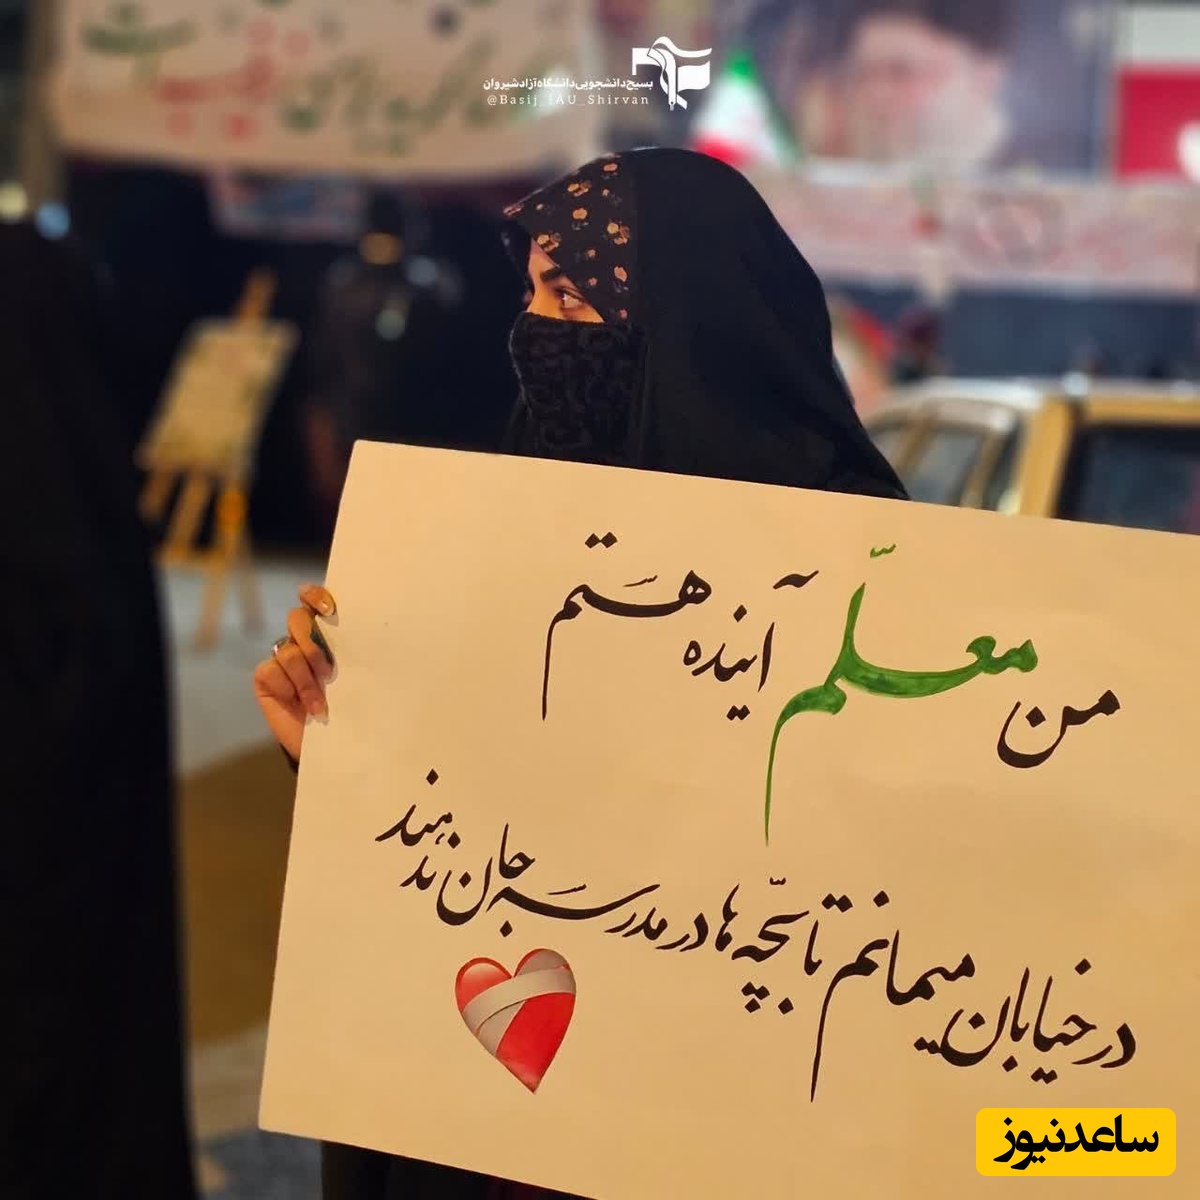 بسیج دانشجویی دانشگاه آزاد شیروان
@Basij_IAU_Shirvan
من معلّم آینده هستم
در خیابان میمانم تا بچّه ها در مدرسه جان ندهند
ساعدنیوز